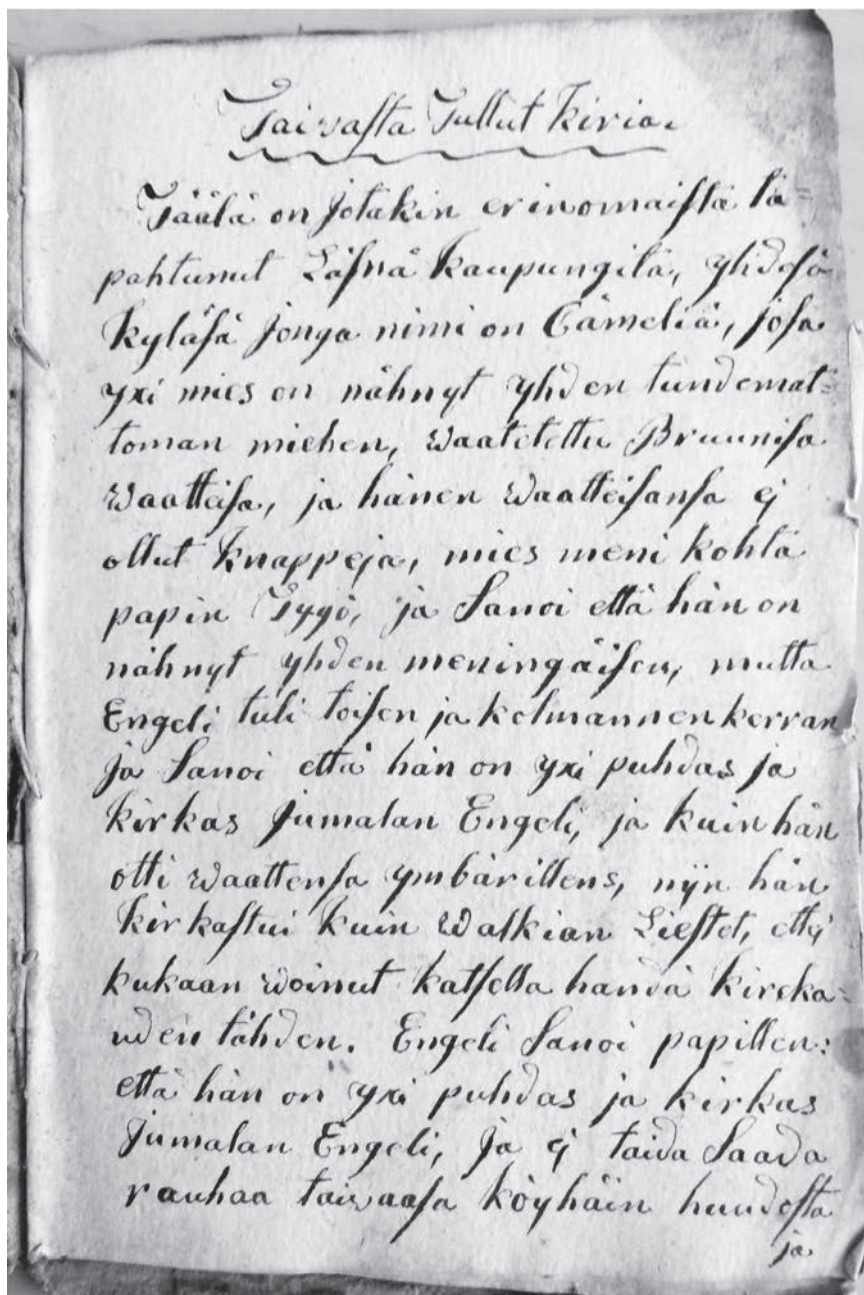 Taivasta Tullut Kiria.
Täälä on Jotakin erinomaista ta=
pahtunut Läsnä Kaupungilä, yhdesä
Kyläsä Jonga nimi on Cämeliä, josa
yxi mies on nähnyt yhden tundemat=
toman miehen, waatetettu Bruunisa
waatteisa, ja hänen waatteisansa ej
ollut Knappeja, mies meni kohta
papin Tygö, ja Sanoi että hän on
nähnyt yhden meningäisen, mutta
Engeli tuli toisen ja kolmannen kerran
Ja Sanoi että hän on yxi puhdas ja
kirkas Jumalan Engeli, ja kuin hän
otti waattensa ymbärillens, nijn hän
Kirkastui Kuin Walkian Liestet, ettej
kukaan woinut katsella händä kircka=
uden tähden. Engeli Sanoi papillen:
että hän on yxi puhdas ja kirkas
Jumalan Engeli, Ja ej taida Saada
rauhaa taiwaasa köyhäin huudosta
ja